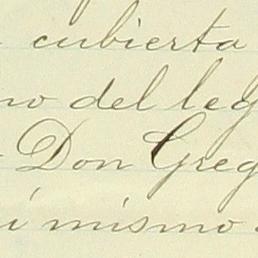 cubierta
no del leg
Don Greg
i mismo